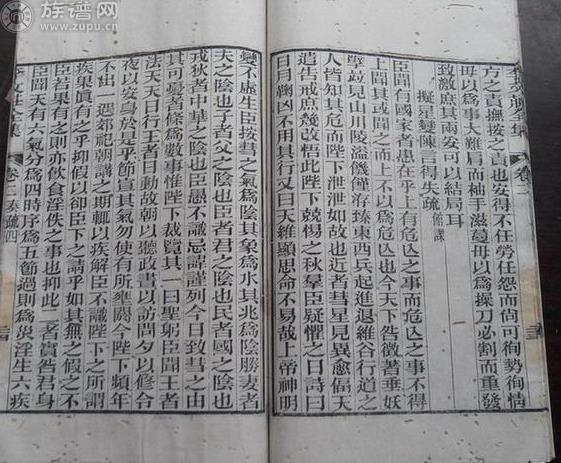 族谱网
www.zupu.cn
方之責撫按之責也安得不任勞任怨而尚可徇勢徇情
毋以爲事大難肩而袖手滋蔓毋以爲操刀必割而重發
致激庶其兩安可以結局耳
擬星變陳言得失疏 館課
臣聞有國家者患在乎上有危亾之事不得
上聞其或聞之而上不以爲危亾也今天下咎徵著垂妖
孽竝見山川陵溢饑饉洊臻東西兵起進退維谷行道之
人皆知其危而陛下泄泄如故也近者彗星見異愈偪天
遺告戒庶幾改悟此陛下兢惕之秋羣臣疑懼之日詩曰
日月鞠凶不用其行又曰天維顯思命不易哉上帝神明
變不虛生臣按彗之氣爲陰其象爲水其兆爲陰勝妻者
夫之陰也子者父之陰也臣者君之陰也民者國之陰也
戎狄者中華之陰也臣愚不識忌諱謹列今日致彗之由
其可憂者條爲數事惟陛下裁覽其一曰聖躬臣聞王者
法天天日行王者日動故朝以聽政晝以訪問夕以修令
夜以安身於是乎節宣其氣勿使有所壅閼今陛下頻年
不出一遇郊祀朝講之期輒以疾解臣不識陛下之所謂
疾果眞有之乎抑假以卻臣下之請乎如其無之假之不
臣若果有之則亦飲食淫佚之事也抑此二者實咎君身
臣聞天有六氣分爲四時序爲五節過則爲災淫生六疾
全集 卷二 奏疏四